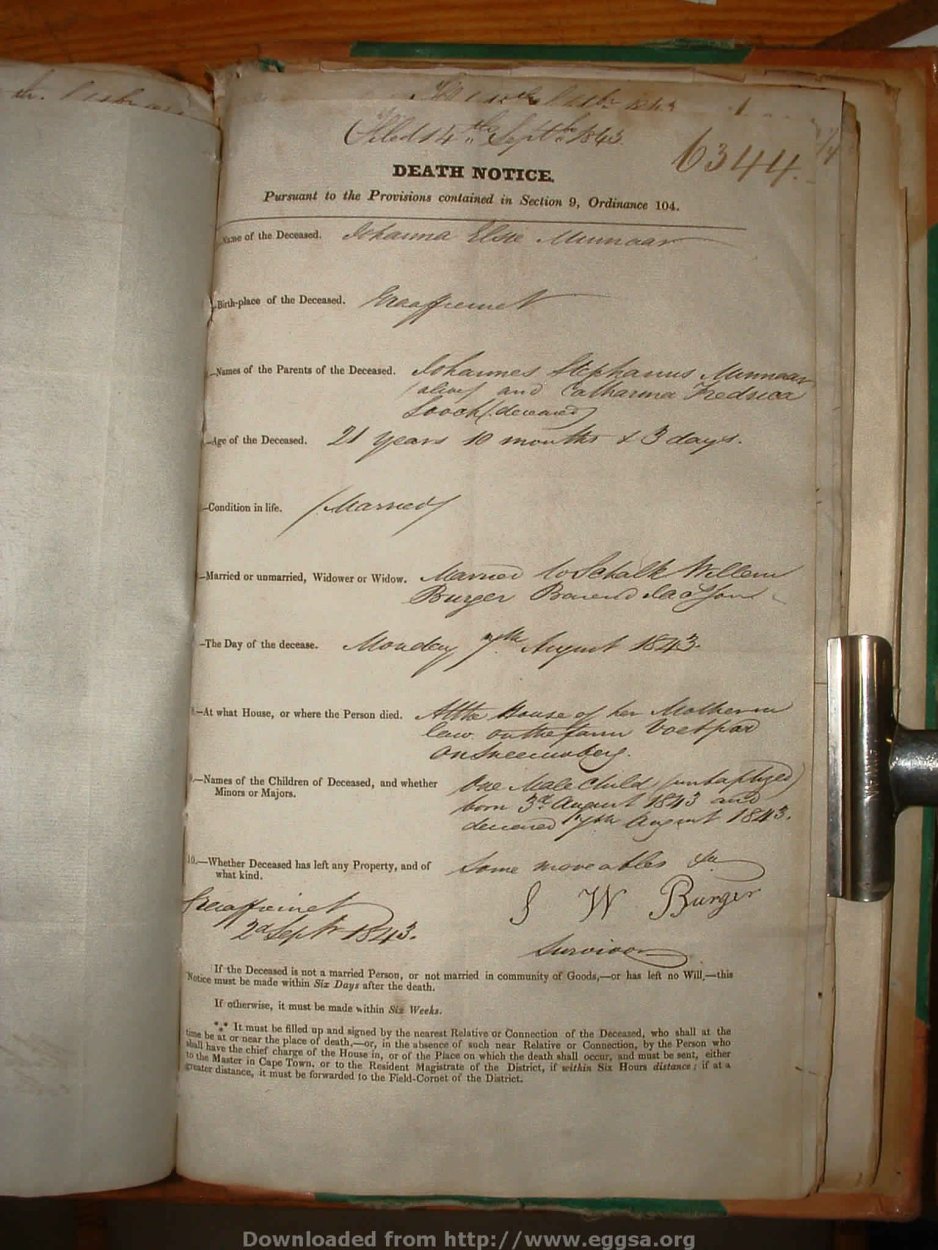 Filed 14th Septbr 1843
6344.
DEATH NOTICE.
Pursuant to the Provisions contained in Section 9, Ordinance 104.
Name of the Deceased. Johanna Elsie Munnaar
Birth-place of the Deceased. Graaffreinet
—Names of the Parents of the Deceased. Johannes Stephanus Munnaar
(alive) and Catharina Fredrica
Looch (deceased)
—Age of the Deceased. 21 years 10 months & 3 days.
—Condition in life. (Married)
—Married or unmarried, Widower or Widow. Married to Schalk Willem
Burger Barend
—The Day of the decease. Monday 7th August 1843.
8.—At what House, or where the Person died. At the House of her Mother in
law on the farm Voetpad
on Sneeuwberg.
9.—Names of the Children of Deceased, and whether
Minors or Majors.
One Male Child (unbaptized)
born 3d August 1843 and
deceased 7th August 1843.
10.—Whether Deceased has left any Property, and of
what kind.
Some moveables &a
Graaffreinet
2d Septr 1843.
S W Burger
Survivor
If the Deceased is not a married Person, or not married in community of Goods,—or has left no Will,—this
Notice must be made within Six Days after the death.
If otherwise, it must be made within Six Weeks.
*** It must be filled up and signed by the nearest Relative or Connection of the Deceased, who shall at the
time be at or near the place of death,—or, in the absence of such near Relative or Connection, by the Person who
shall have the chief charge of the House in, or of the Place on which the death shall occur, and must be sent, either
to the Master in Cape Town, or to the Resident Magistrate of the District, if within Six Hours distance; if at a
greater distance, it must be forwarded to the Field-Cornet of the District.
Downloaded from http://www.eggsa.org